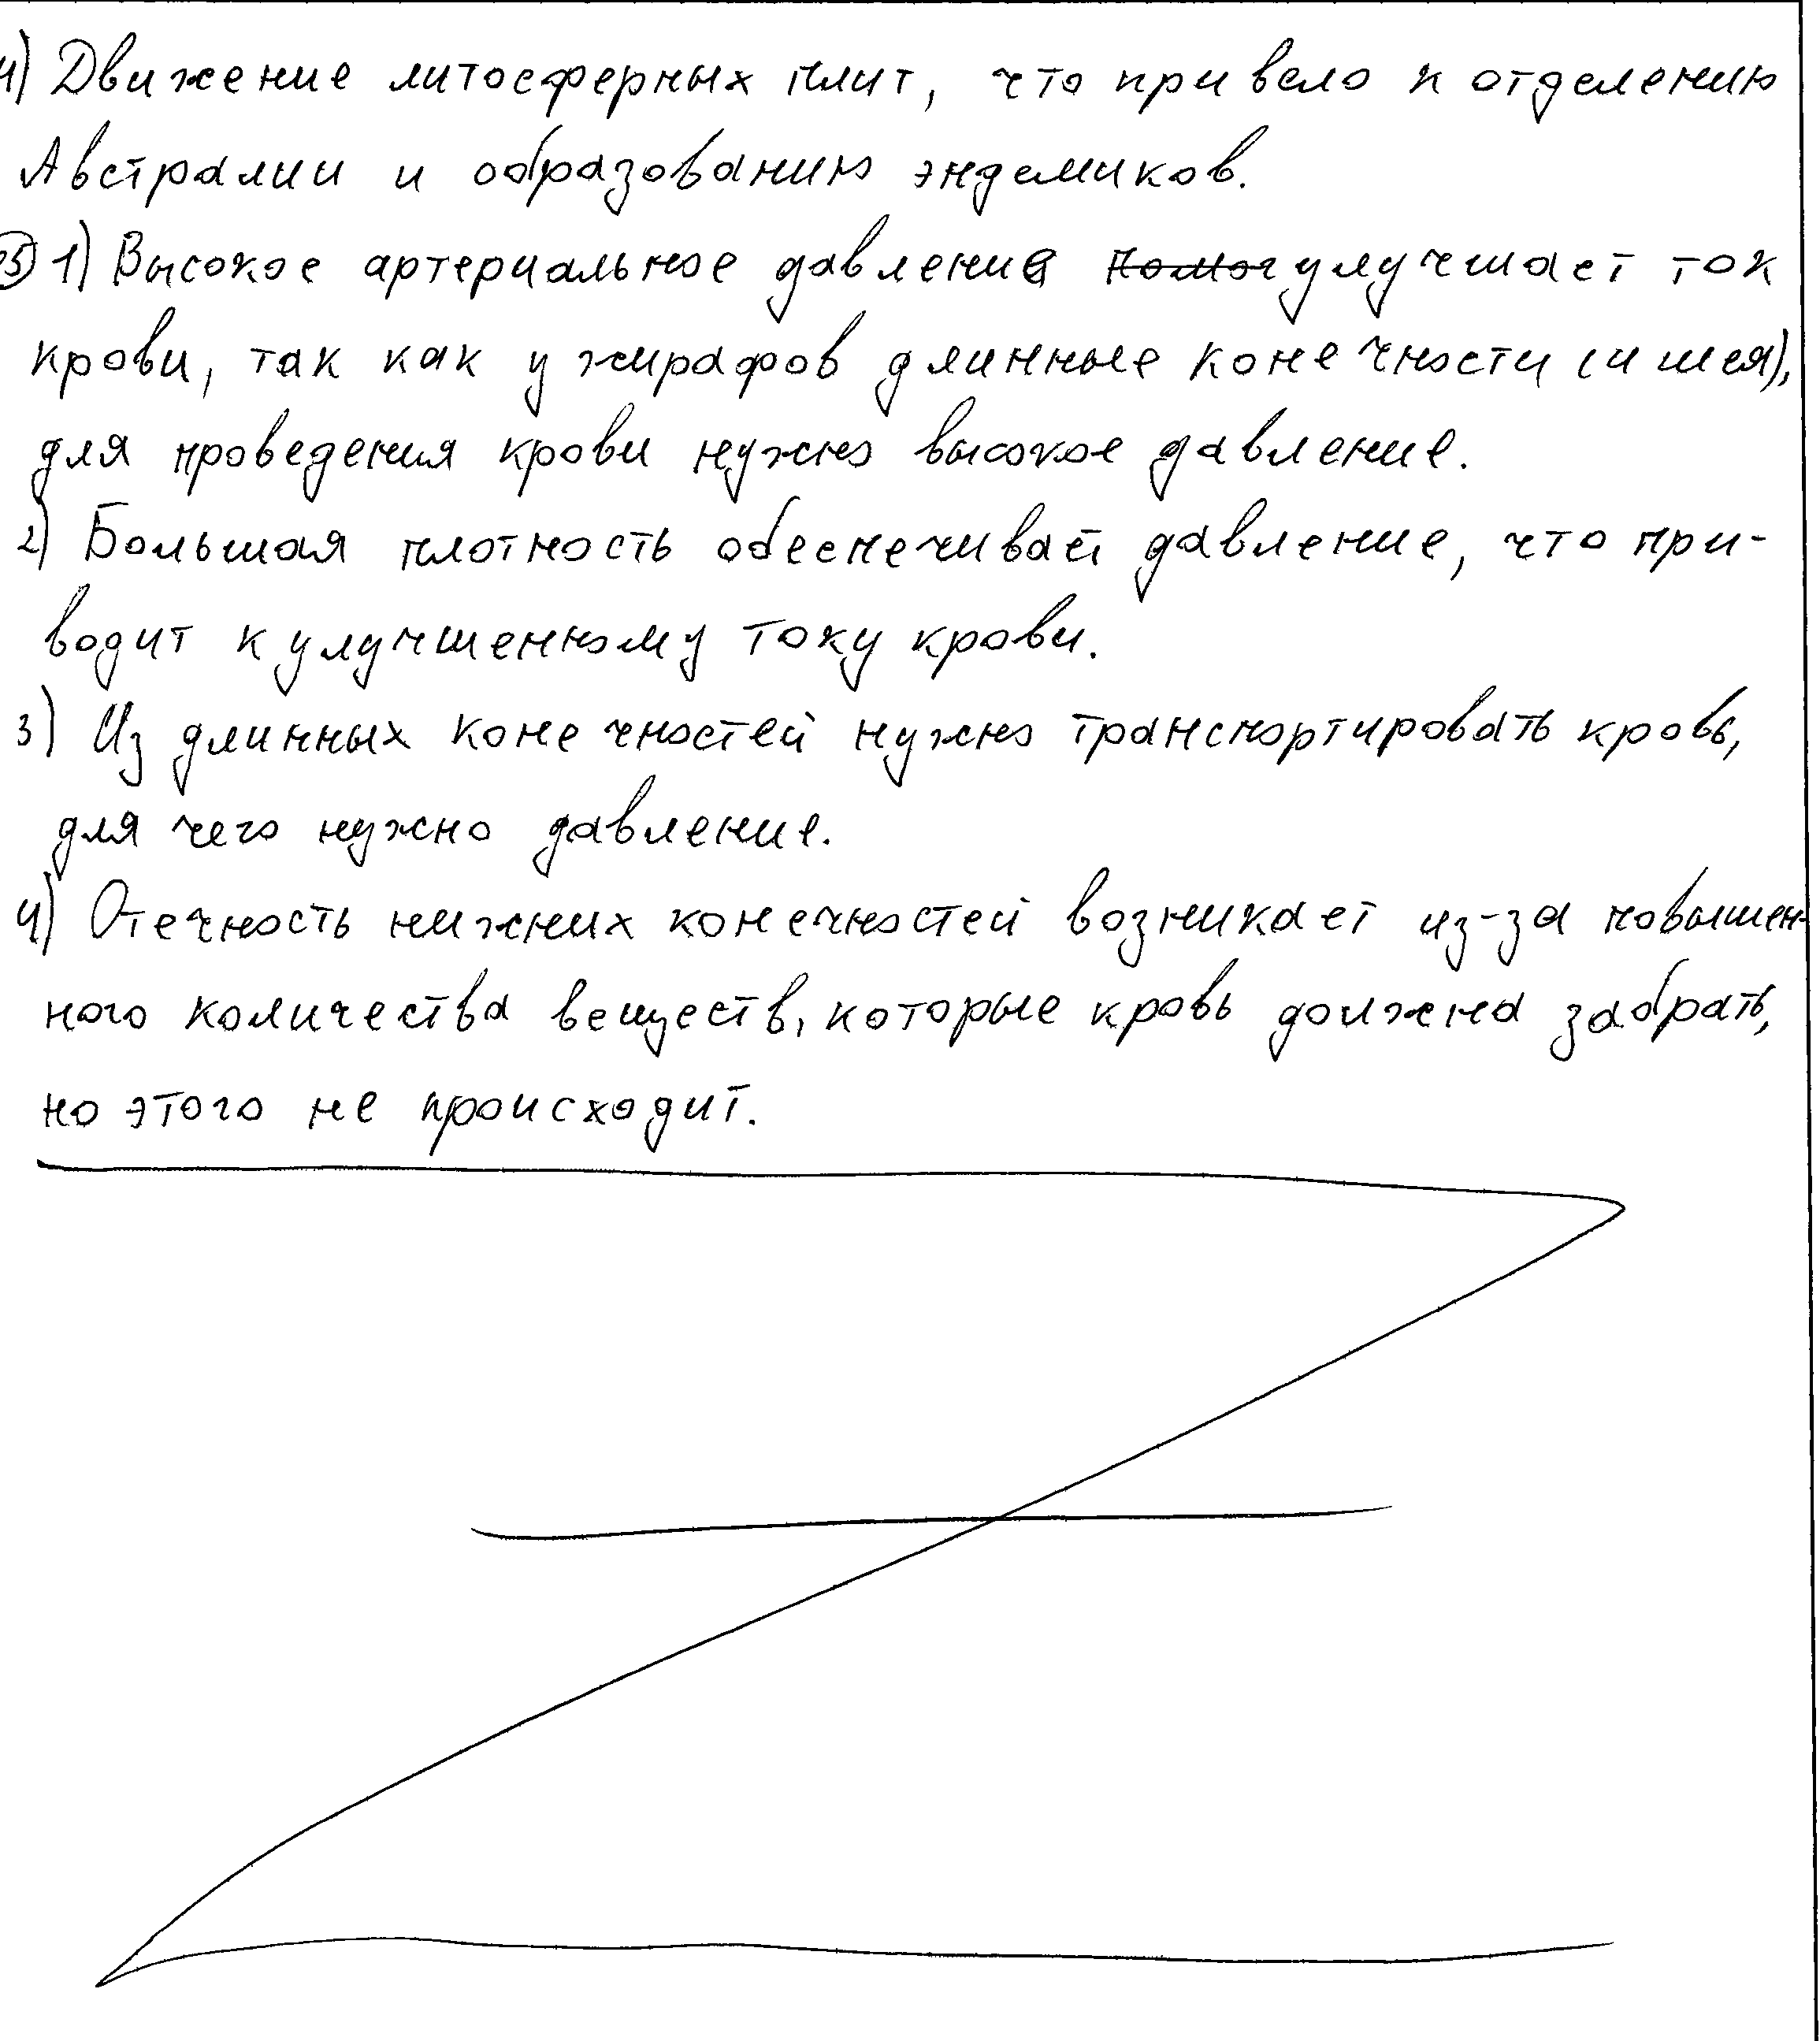 4) Движение литосферных плит, что привело к отделению
Австралии и образованию эндемиков.
25) 1) Высокое артериальное давление помог улучшает ток
крови, так как у жирафов длинные конечности (и шея),
для проведения крови нужно высокое давление.
2) Большая плотность обеспечивает давление, что при-
водит к улучшенному току крови.
3) Из длинных конечностей нужно транспортировать кровь,
для чего нужно давление.
4) Отечность нижних конечностей возникает из-за повышен-
ного количества веществ, которые кровь должна забрать,
но этого не происходит.